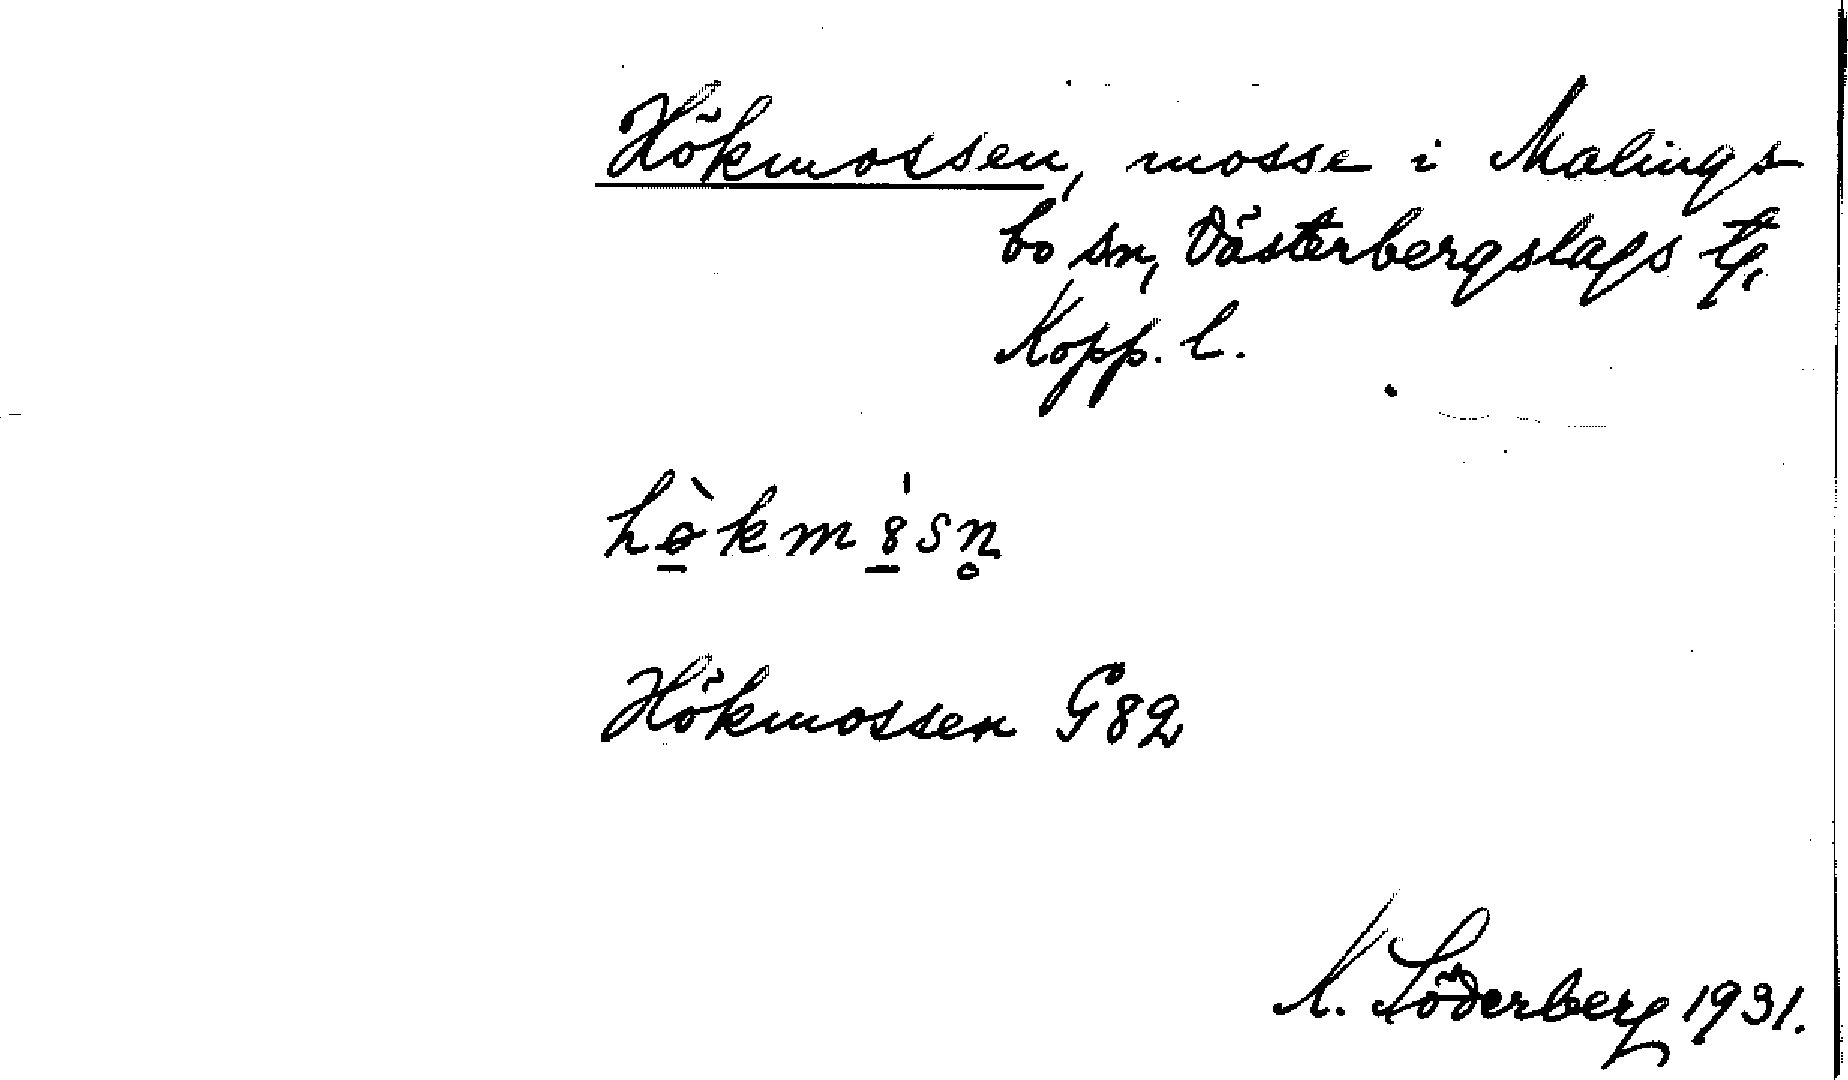 Hökmossen, mosse i Malings
bo sn, Västerbergslags tg,
Kopp. l.
hø̠̀km8̠̍sn̥
Hökmossen G82
K. Söderberg 1931.